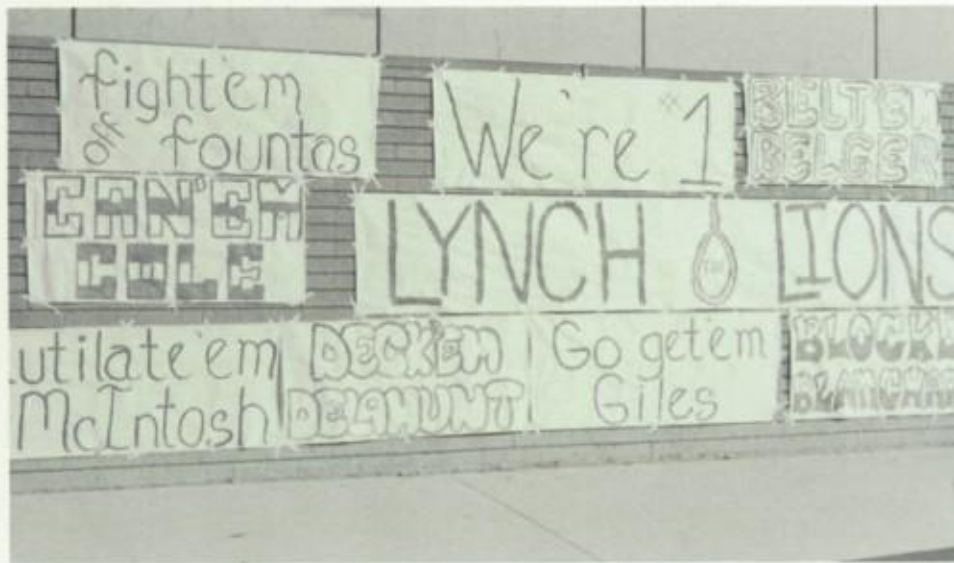 fight'em
off fountas
We're #1
BELT'EM
BELGER
CAN'EM
COLE
LYNCH THE LIONS
utilate'em
McIntosh
DECK'EM
DELAHUNT
Go get'em
Giles
BLOCK'E
BLANCHAR